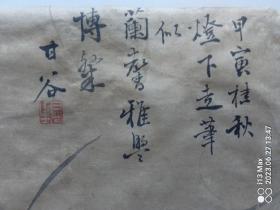 甲寅桂秋
燈下走筆
似
蘭馨雅興
博粲
甘谷
i13 Max
2023.06.27 13:47